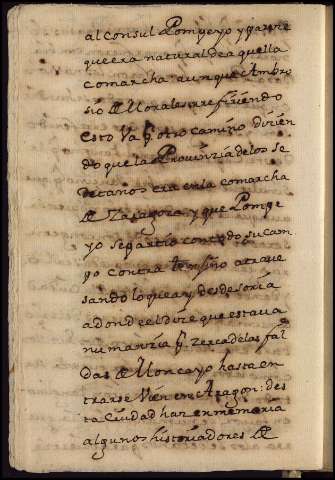 al Consul Pompeyo y parece
que era natural de aquella
comarcha: aunque Ambro
sio de Morales refiriendo
esto va pr. otro camino dicien
do que la Provinzia de los se
detanos era en la comarcha
de Zaragoza, y que Pompe
yo se partio con todo su cam
po contra termsino atrave
sando lo que ay desde soria
adonde el dize que estava
numanzia pr. zerca de las fal
das de Moncayo hasta en
trarse vien en Aragon: des
ta Ciudad hazen memoria
algunos historiadores de